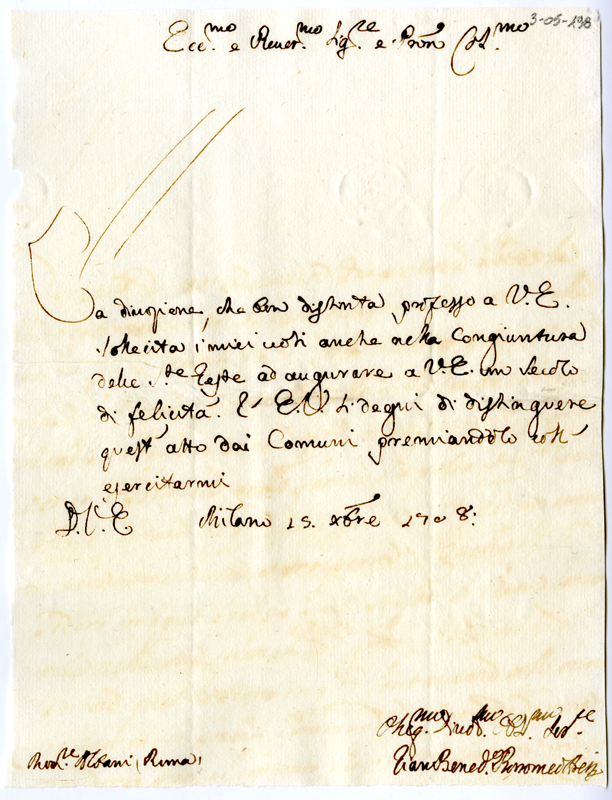 3-05-198
Ecc.mo e Rever.mo Sig.re e Pron Col.mo
La divozione, che ben distinta professo a V.E.
sollecita i miei voti anche nella congiuntura
delle S.te Feste ad augurare a V.E. un secolo
di felicità. L' E.V. si degni di distinguere
quest' atto dai Comuni premiandolo coll'
esercitarmi
D.V.E. Milano 15. Xbre 1708:
Div.mo Ser.re
Albani, Roma,
Gian Bened.o Borromeo Arese